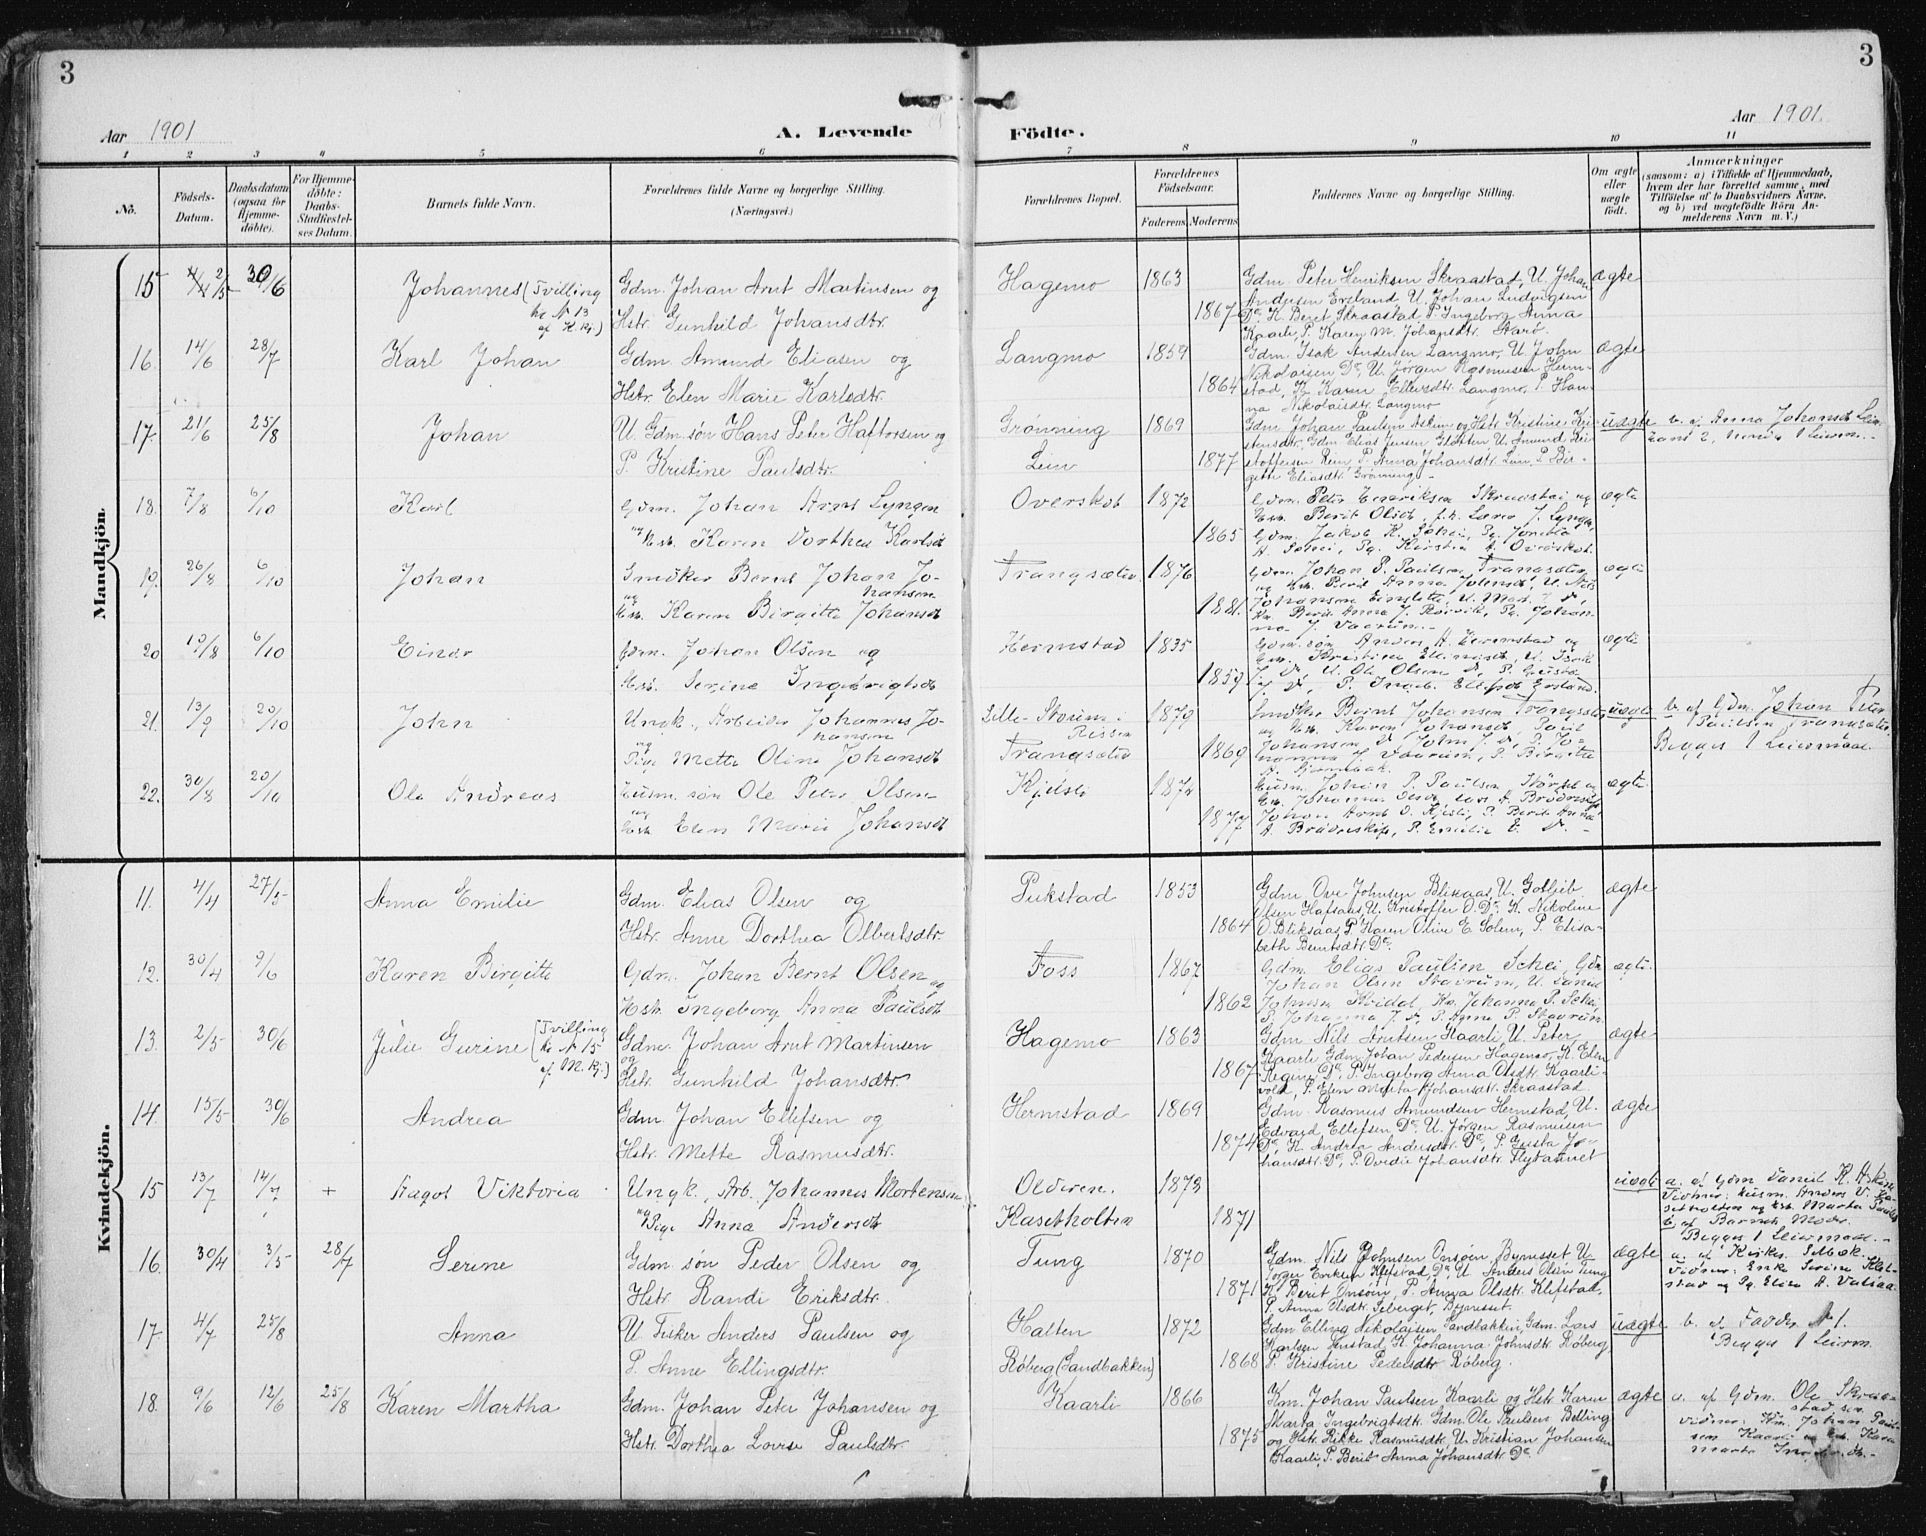 3
3
Aar 1901
A. Levende
Födte.
Aar 1901.
1 2 3 4 5 6 7 8 9 10 11
No.
Födsels-Datum.
Daabsdatum (ogsaa for Hjemme-döbte).
For Hjemme-döbte: Daabs-Stadfæstel-ses Datum.
Barnets fulde Navn.
Forældrenes fulde Navne og borgerlige Stilling. (Næringsvei.)
Forældrenes Bopæl.
Forældrenes Födselsaar.
Faderens. Moderens.
Faddernes Navne og borgerlige Stilling.
Om ægte eller uægte födt.
Anmærkninger
(saasom: a) i Tilfælde af Hjemmedaab, hvem der har forrettet samme, med Tilföielse af to Daabsvidners Navne, og b) ved uægtefödte Börn Anmelderens Navn m. V.)
Mandkjön.
15 2/5 30/6 Johannes (Tvilling til N 13 af K.Kj.) Gdm. Johan Arnt Martinsen og
Hstr. Gunhild Johansdtr.
Hagemo 1863 1867
Gdm. Peter Henriksen Skraastad, U. Johan
Andersen Ersland, U. Johan Ludvigsen
Do, K. Beret Skraastad, P. Ingeborg Anna
Kaarli, P. Karen M. Johansdtr. Starö.
ægte
16. 14/6 28/7 Karl Johan Gdm. Amund Eliasen og
Hstr. Elen Marie Karlsdtr.
Langmo 1859 1864
Gdm. Isak Andersen Langmo, U. John
Nikolaisen Do, U. Jörgen Rasmussen Herm-
stad, K. Karen Ellevsdtr. Langmo, P. Han-
na Nikolaisdtr. Langmo
ægte
17. 21/6 25/8 Johan U. Gdm.søn Hans Peter Haftorsen og
P. Kristine Paulsdtr.
Grönning
Lein
1869 1877
Gdm. Johan Paulsen Asken og Hstr. Kristine Kri-
stensdtr. Gdm. Elias Jensen U. Amund Kri-
stoffersen Rein, P. Anna Johansdtr. Lein, P. Bir-
gitte Eliasdtr. Grönning
uægte b. af Anna Johansdt. Lein
18. 7/8 6/10 Karl Gdm. Johan Arnt Lyngen
og Hst. Karen Dorthea Karlsdt
Overskot 1872 1865
Gdm. Peter Henriksen Skraastad og
Hst. Berit Olsdt,
Gdm. Jakob K. Schei, Pg.
A. Schei, Pg. Kirstin A. Overskot.
ægte
19. 26/8 6/10 Johan Smöker Bernt Johan Jo-
hansen
og Hst. Karen Birgitte Johansdt
Trangsæter 1876 1881.
Gdm. Johan P. Paulsen Trangsæter
og Hst. Berit Anna U. Nils
Johansen
ægte
20 6/10 Einar Gdm. Johan Olsen og
Hst. Serine Ingebrigtsdt
Hermstad 1835 1859
Gdm. søn Anders A. Hermstad og
U. Ole Olsen
ægte
21. 13/9 20/10 John Ungk. Arbeider Johannes Jo-
hansen
og Pige Mette Oline Johansdt
Lille-Storum. Rissen
Trangsæter
1879 1860
Smöker Bernt Johansen Trangsæter
og Hst. Karen Johansdt, Paul
uægte b. af Gdm. Johan Peter
Paulsen Trangsæter
Begges 1 Leiermaal
22. 30/8 20/10 Ole Andreas Husm. søn Ole Peter Olsen
og Hst. Elen Marie Johansdt
Kjelsli 1872 1877
Husm. Johan P. Paulsen og
ægte
Kvindekjön.
11. 4/4 27/5 Anna Emilie Gdm. Elias Olsen og
Hstr. Anne Dorthea Olbertsdtr.
Pukstad 1853 1864
Gdm Ove Johnsen Bliksaas, U. Gotlieb
Olsen Hafsaas, U. Kristoffer O. Do, K. Nikoline
O. Bliksaas, P. Karen Oline E. Solem, P. Elisa-
beth Berntsdtr. Do.
ægte
12. 30/4 9/6 Karen Birgitte Gdm. Johan Bernt Olsen og
Hst. Ingeborg Anna Paulsdt
Foss 1867 1862
Gdm. Elias Paulsen Schei, Gdm
Johan Olsen Stavrum, U. Daniel
Johnsen Kvidal, Kn. Johanna P. Schei
P. Johanna J. Do, P. Anna P. Stavrum
ægte
13. 2/5 30/6 Julie Gurine (Tvilling til N 15 af M.Kj.) Gdm. Johan Arnt Martinsen
og Hstr. Gunhild Johansdtr.
Hagemo 1863 1867
Gdm Nils Arntsen Kaarli, U. Peter
Kaarli, Gdm Johan Pedersen Hagemo, K. Elen
Regine Do, P. Ingeborg Anna Olsdtr. Kaarli-
vold, P. Elen Marta Johansdtr. Skraastad.
ægte
14. 15/5 30/6 Andrea Gdm. Johan Ellefsen og
Hstr. Mette Rasmusdtr.
Hermstad 1869 1874
Gdm. Rasmus Amundsen Hermstad, U.
Edvard Ellefsen Do, U. Jörgen Rasmusen
Do, K. Andrea Andersdtr. Do, P. Gusta Jo-
hansdtr. Do, P. Ovedie Johansdtr. Flytaanet
ægte
15 13/7 14/7 + Dagot Viktoria Ungk. Arb. Johannes Mortensen
og Pige Anna Andersdt
Olderen.
Kasetholten
1872 1871
uægte a. af Gdm Daniel K. Asken
Vidner: Husm. Anders V. Ka-
setholten og Hst. Marta Paulsdt
b. af Barnets Moder.
Begges 1 Leiermaal.
16. 30/4 3/5 28/7 Serine Gdm. søn Peder Olsen og
Hstr. Randi Eriksdtr.
Tung 1870 1871
Gdm. Nils Johnsen Onsöien Bynesset, U.
Jörger Eriksen Klefstad, Do, U. Anders Olsen Tung
K. Berit Onsöien, P. Anna Olsdtr. Klefstad,
P. Anna Olsdtr. Seberget, Bynesset.
ægte a. af Kirkes. Selbæk.
Vidner: Enke Serine Klef-
stad og Pg. Elisa A. Valsaa.
17. 4/7 25/8 Anna U. Fisker Anders Paulsen og
P. Anne Ellingsdtr.
Halten
Röberg (Sandbakken)
1872 1868
Gdm Elling Nikolaisen Sandbakken, Gdm. Lars
Karlsen K. Johanna Johnsdtr. Röberg
P. Kristine Pedersdtr. Röberg.
uægte b. af Fadder N 1.
Begges 1 Leierm.
18. 9/6 12/6 25/8 Karen Martha Gdm. Johan Peter Johansen og
Hstr. Dorthea Lovise Paulsdtr.
Kaarli 1866 1875
Km. Johan Paulsen Kaarli og Hstr. Karen
Marta Ingebrigtsdtr. Gdm. Ole Paulsen Belling
og Hstr. Rikke Rasmusdtr. U. Kristian Johansen
Kaarli, P. Berit Anna Johansdtr. Do
ægte a. af Gdm. Ole Skraa-
stad sen.
Vidner: Km. Johan Paul-
sen Kaarli og Hst. Karen
Marta